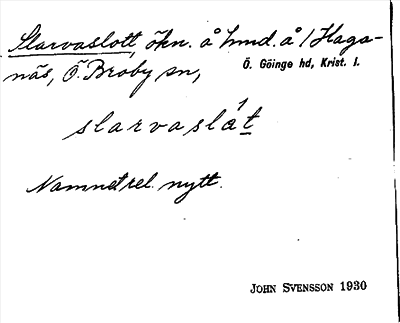 Slarvaslott, ökn. å hmd. å 1 Haga-
näs, Ö. Broby sn, Ö. Göinge hd, Krist. l.
slarvaslåt
Namnet rel. nytt.
JOHN SVENSSON 1930